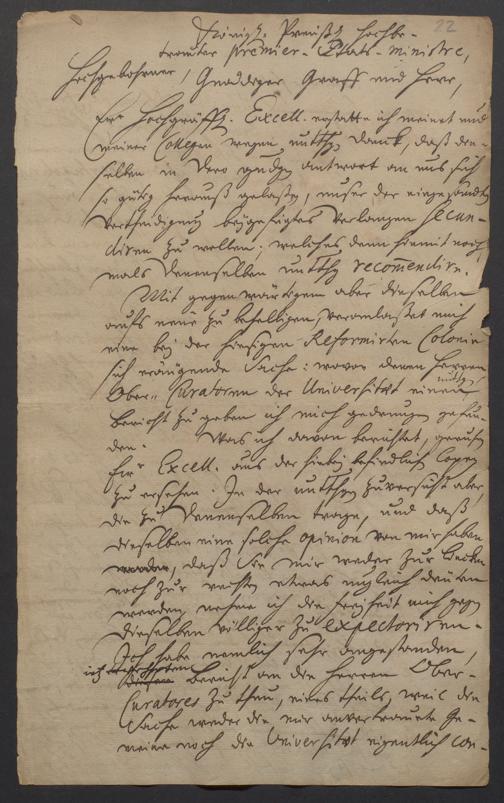 22
Königl. Preußl. Hochbe-
trauter Premier-Etats-Ministre,
Hochgebohrner, Gnädiger Graff und Herr,
Ew. Hochgräffl. Excell. erstatte ich meinet und
meiner Collegen wegen untthg Danck, daß den-
selben in Dero gndgn antwort an uns sich
so gütig herauß gelaßen, unser der eingesandten
Vertheidigung beygefügtes Verlangen secun-
diren zu wollen; welches denn hiemit noch
mals Denenselben untthg recommendire.
Mit gegenwärtigem aber dieselben
aufs neue zu behelligen, veranlaßet mich
eine bey der hiesigen Reformirten Colonie
sich eräugende Sache: wovon denen Herren
Ober-Curatoren der Universität einen
untthgn
Bericht zu geben ich mich gedrungen gefun-
den. Was ich davon berichtet, geruhen
Ew. Excell. aus der hiebey befindlichen Copey
zu ersehen. In der untthgn Zuversicht aber,
die zu Denenselben trage, und daß
dieselben eine solche opinion von mir haben
werden, daß Sie mir weder zur Lincken
noch zur rechten etwas ungleich deuten
werden, nehme ich die freyheit mich gegen
dieselben völliger zu expectoriren.
Ich habe nemlich sehr angestanden,
ich
diesen Bericht an die Herren Ober-
Curatores zu thun, eines theils, weil die
Sache weder die mir anvertrauete Ge-
meine noch die Universität eigentlich con-